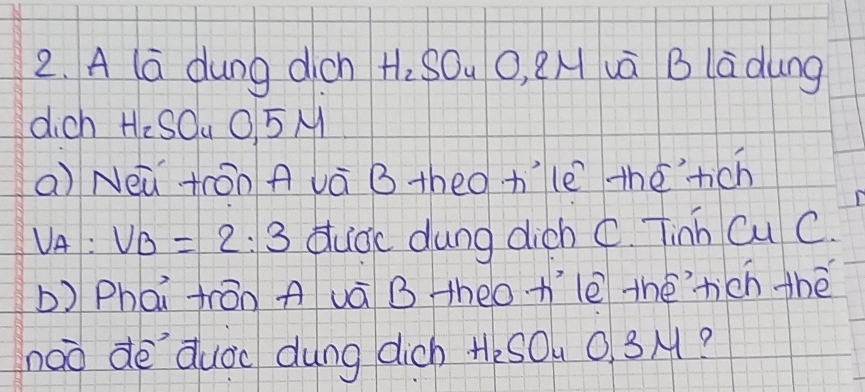 2. A là dung dịch H₂SO₄ 0,2M và B là dung
dịch H₂SO₄ 0,5M
a) Nếu trộn A và B theo tỉ lệ thể tích
VA : VB = 2:3 được dung dịch C. Tính CM C.
b) Phải trộn A và B theo tỉ lệ thể tích thế
nào để được dung dịch H₂SO₄ 0,3M?